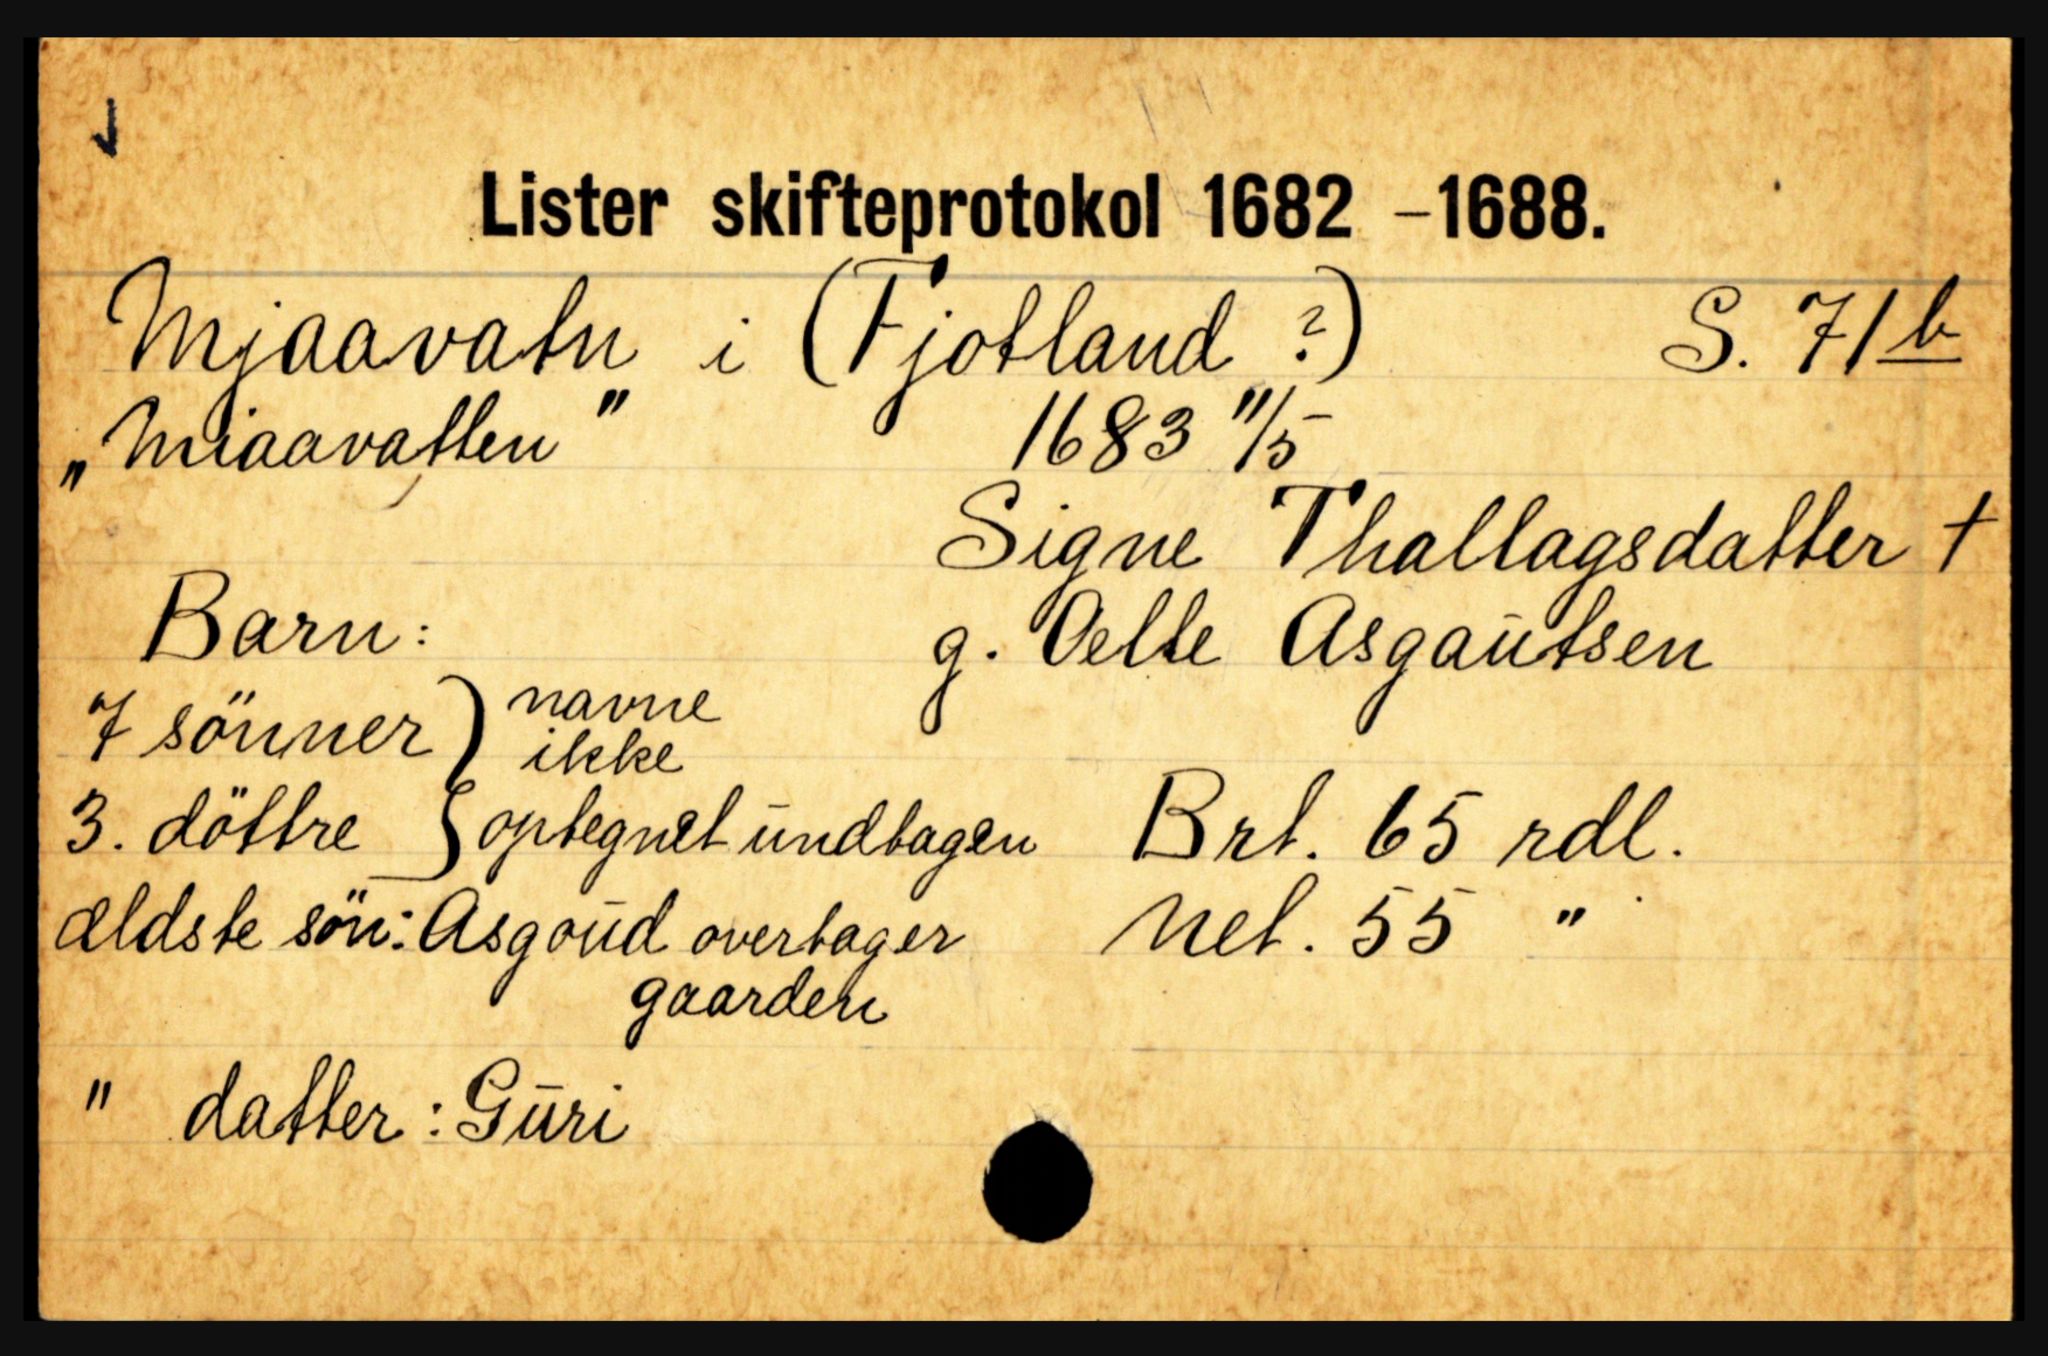 Lister skifteprotokol 1682 - 1688.
Mjaavatn i (Fjotland ?) S. 71 b
„Miaavatten" 1683 11/5
Signe Thallagsdatter †
Barn: g. Oelte Asgautsen
7 sönner } navne
ikke
3. döttre } optegnet undtagen Brt. 65 rdl.
ældste sön: Asgoud overtager Net. 55 "
gaarden
" datter: Guri